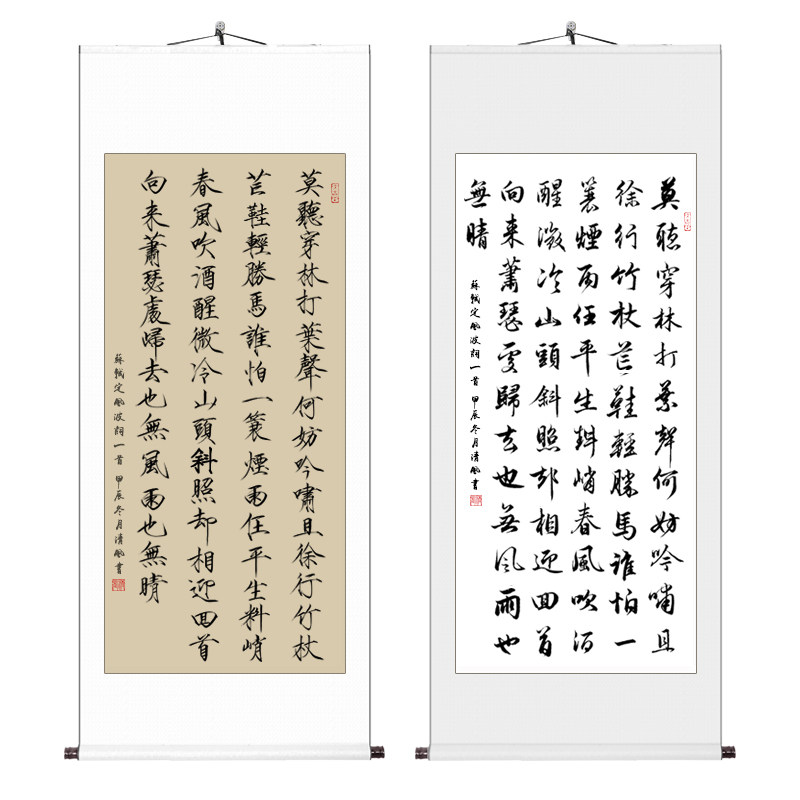 莫聽穿林打葉聲何妨吟嘯且徐行竹杖
芒鞋輕勝馬誰怕一蓑煙雨任平生料峭
春風吹酒醒微冷山頭斜照却相迎回首
向来蕭瑟處歸去也無風雨也無晴
蘇軾定風波詞一首 甲辰冬月清風書
莫聴穿林打葉聲何妨吟嘯且
徐行竹杖芒鞋輕勝馬誰怕一
蓑煙雨任平生料峭春風吹酒
醒微冷山頭斜照却相迎回首
向来蕭瑟處歸去也无風雨也
無晴
蘇軾定風波詞一首 甲辰冬月清風書